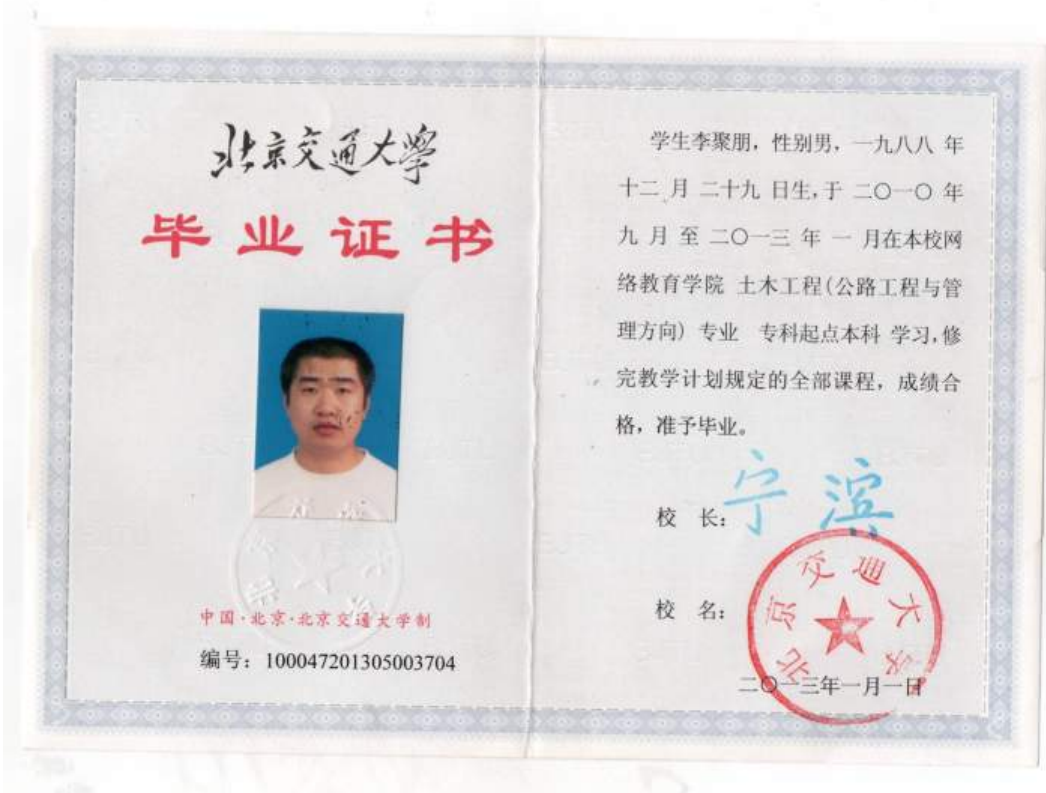 北京交通大學
毕业证书
中国·北京·北京交通大学制
编号：100047201305003704
学生李聚朋，性别男，一九八八 年
十二 月 二十九 日生，于 二〇一〇 年
九 月 至 二〇一三 年 一 月在本校网
络教育学院 土木工程(公路工程与管
理方向) 专业 专科起点本科 学习，修
完教学计划规定的全部课程，成绩合
格，准予毕业。
校 长：宁 滨
校 名：
北京交通大学
二〇一三年一月一日